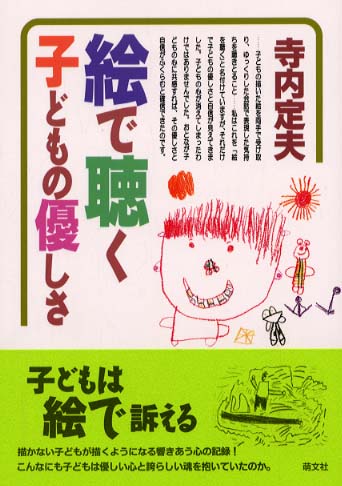 寺内定夫
……子どもの描いた絵を両手で受け取
り、ゆっくりした会話で表現した気持
ちを聴きとること……私はこれを「絵
を聴く」と名付けていますが、それだけ
で子どもの優しさと自信が見えてきま
した。子どもの心が消えてしまったわ
けではありませんでした。おとなが子
どもの心に共感すれば、その優しさと
自信がふくらむと確信できたのです。
絵で聴く
子どもの優しさ
子どもは
絵で訴える
描かない子どもが描くようになる響きあう心の記録!
こんなにも子どもは優しい心と誇らしい魂を抱いていたのか。
萌文社